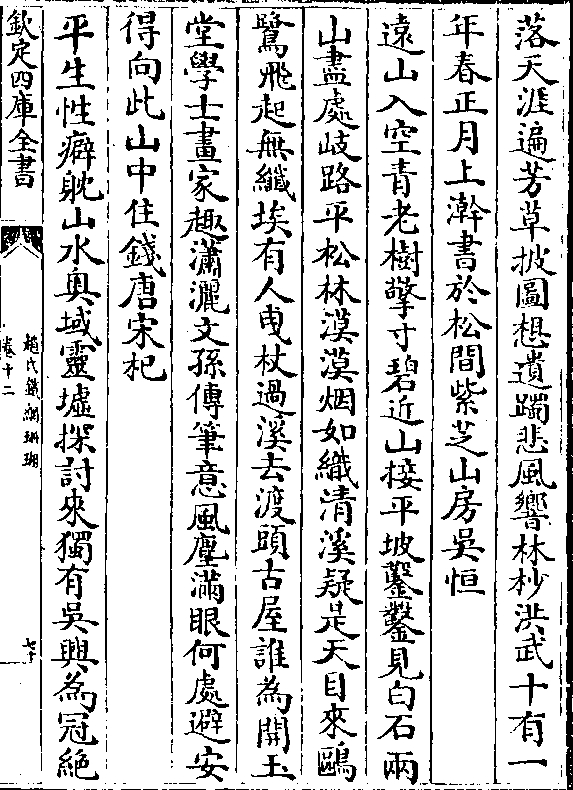 落天涯遍芳草披圖想遺躅悲風響林杪洪武十有一
年春正月上澣書於松間紫芝山房吳恒
遠山入空青老樹擎寸碧近山接平坡鑿鑿見白石兩
山盡處岐路平松林漠漠烟如織清溪疑是天目來鷗
鷺飛起無纖埃有人曵杖過溪去渡頭古屋誰為開玉
堂學士畫家趣瀟灑文孫傳筆意風塵滿眼何處避安
得向此山中住錢唐宋杞
平生性癖躭山水奥域靈墟探討來獨有吳興為冠絶
欽定四庫全書
趙氏鐵網珊瑚
卷十二
七十